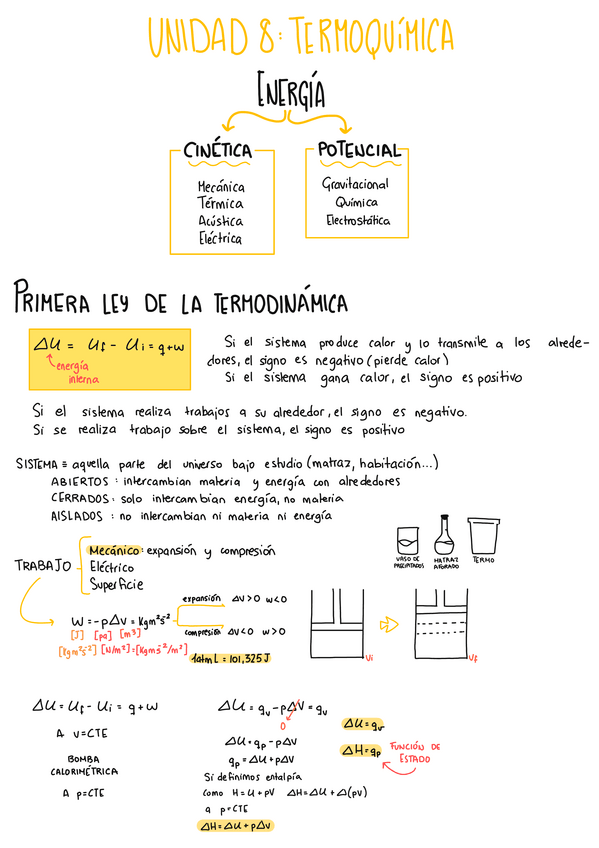 UNIDAD 8: TERMOQUÍMICA
ENERGÍA
CINÉTICA
Mecánica
Térmica
Acústica
Eléctrica
POTENCIAL
Gravitacional
Química
Electrostática
PRIMERA LEY DE LA TERMODINÁMICA
ΔU = Uf - Ui = q+w
energía
interna
Si el sistema produce calor y lo transmite a los alrede-
dores, el signo es negativo (pierde calor)
Si el sistema gana calor, el signo es positivo
Si el sistema realiza trabajos a su alrededor, el signo es negativo.
Si se realiza trabajo sobre el sistema, el signo es positivo
SISTEMA ≡ aquella parte del universo bajo estudio (matraz, habitación...)
ABIERTOS : intercambian materia y energía con alrededores
CERRADOS : solo intercambian energía, no materia
AISLADOS : no intercambian ni materia ni energía
VASO DE
PRECIPITADOS
MATRAZ
AFORADO
TERMO
TRABAJO
Mecánico: expansión y compresión
Eléctrico
Superficie
W = -pΔV = Kgm²s⁻²
[J] [pa] [m³]
[Kgm²s⁻²] [N/m²]=[Kgms⁻²/m²]
expansión ΔV>0 W<0
compresión ΔV<0 W>0
1atm L = 101,325 J
Vi
Vf
ΔU = Uf - Ui = q+w
A V=CTE
BOMBA
CALORIMÉTRICA
A p=CTE
ΔU = qv - pΔV = qv
0
ΔU = qp - pΔV
qp = ΔU + pΔV
Si definimos entalpía
como H = U + pV ΔH = ΔU + Δ(pV)
a p=CTE
ΔH = ΔU + pΔV
ΔU = qv
ΔH = qp
FUNCIÓN DE
ESTADO